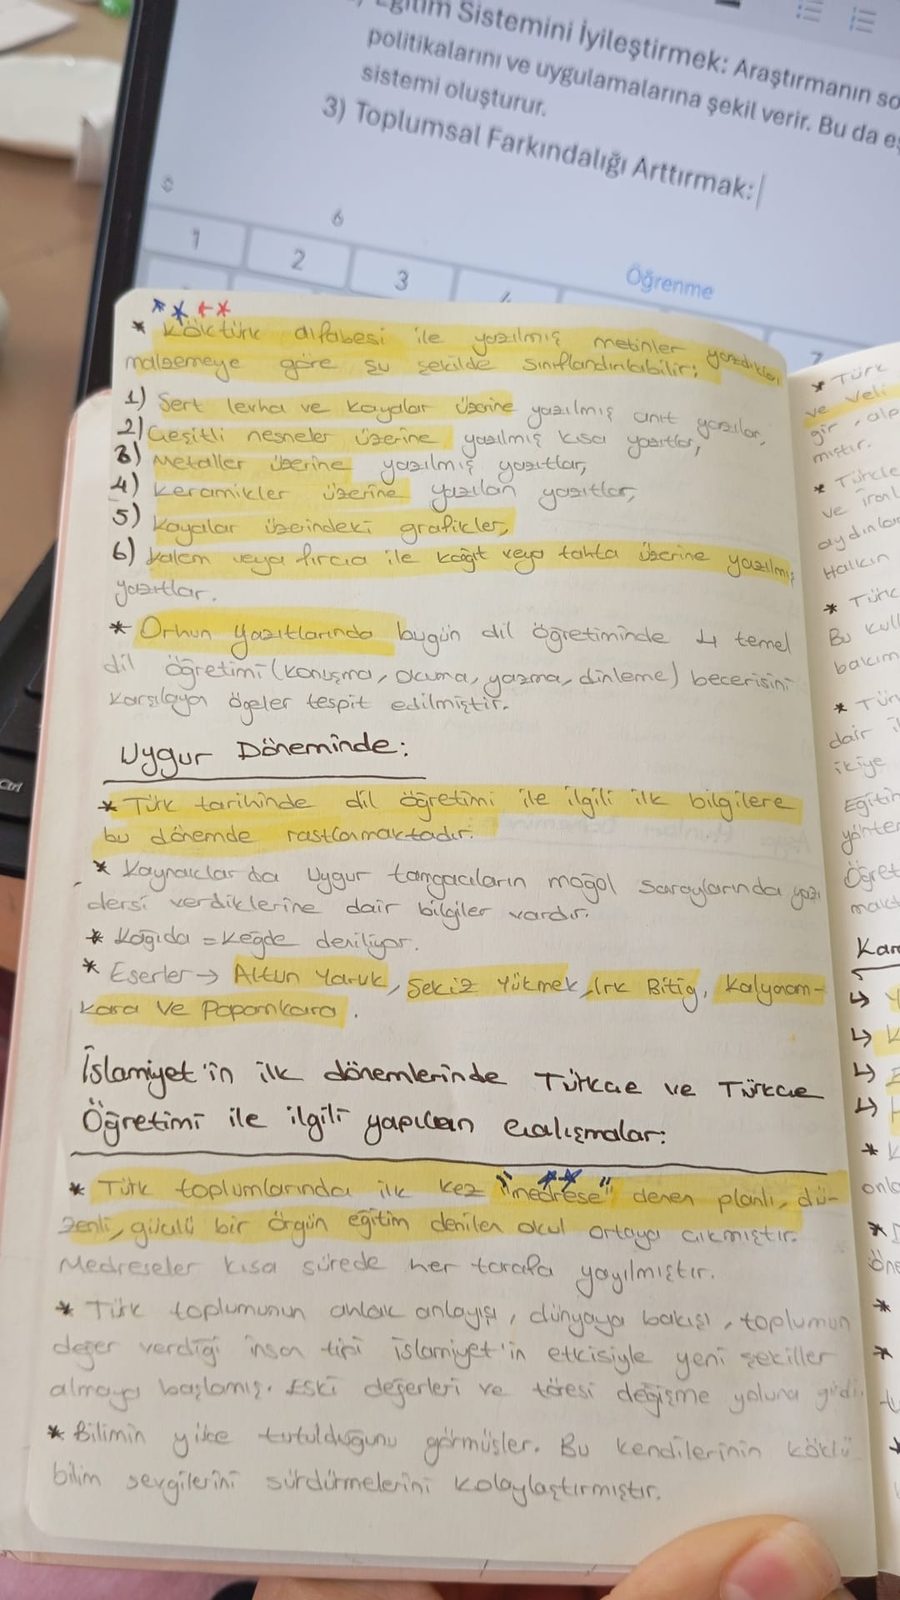 Eğitim Sistemini İyileştirmek: Araştırmanın so
politikalarını ve uygulamalarına şekil verir. Bu da eş
sistemi oluşturur.
3) Toplumsal Farkındalığı Arttırmak:
6
1
2
3
Öğrenme
Ctrl
* Köktürk alfabesi ile yazılmış metinler yazdıkları
malzemeye göre şu şekilde sınıflandırılabilir;
1) Sert levha ve kayalar üzerine yazılmış anıt yazılar,
2) Çeşitli nesneler üzerine yazılmış kısa yazıtlar,
3) Metaller üzerine yazılmış yazıtlar,
4) Keramikler üzerine yazılan yazıtlar,
5) Kayalar üzerindeki grafikler,
6) Kalem veya fırça ile kağıt veya tahta üzerine yazılmış
yazıtlar.
* Orhun Yazıtlarında bugün dil öğretiminde 4 temel
dil öğretimi (konuşma, okuma, yazma, dinleme) becerisini
karşılayan ögeler tespit edilmiştir.
Uygur Döneminde:
* Türk tarihinde dil öğretimi ile ilgili ilk bilgilere
bu dönemde rastlanmaktadır.
* Kaynaklarda Uygur tamgacıların moğol saraylarında yazı
dersi verdiklerine dair bilgiler vardır.
* Kağıda = Keğde deniliyor.
* Eserler → Altun Yaruk, Sekiz Yükmek, Irk Bitig, Kalyanam-
kara ve Papamkara.
İslamiyet'in ilk dönemlerinde Türkçe ve Türkçe
Öğretimi ile ilgili yapılan çalışmalar:
* Türk toplumlarında ilk kez "medrese" denen planlı, dü-
zenli, güçlü bir örgün eğitim denilen okul ortaya çıkmıştır.
Medreseler kısa sürede her tarafa yayılmıştır.
* Türk toplumunun ahlak anlayışı, dünyaya bakışı, toplumun
değer verdiği insan tipi İslamiyet'in etkisiyle yeni şekiller
almaya başlamış. Eski değerleri ve töresi değişme yoluna girdi.
* Bilimin yüce tutulduğunu görmüşler. Bu kendilerinin köklü
bilim sevgilerini sürdürmelerini kolaylaştırmıştır.
* Türk
ve Veli
mıştır.
ve
aydınlar
Halkın
* Türk
Bu kull
bakım
dair
ikiye
Eğitim
yönter
Öğret